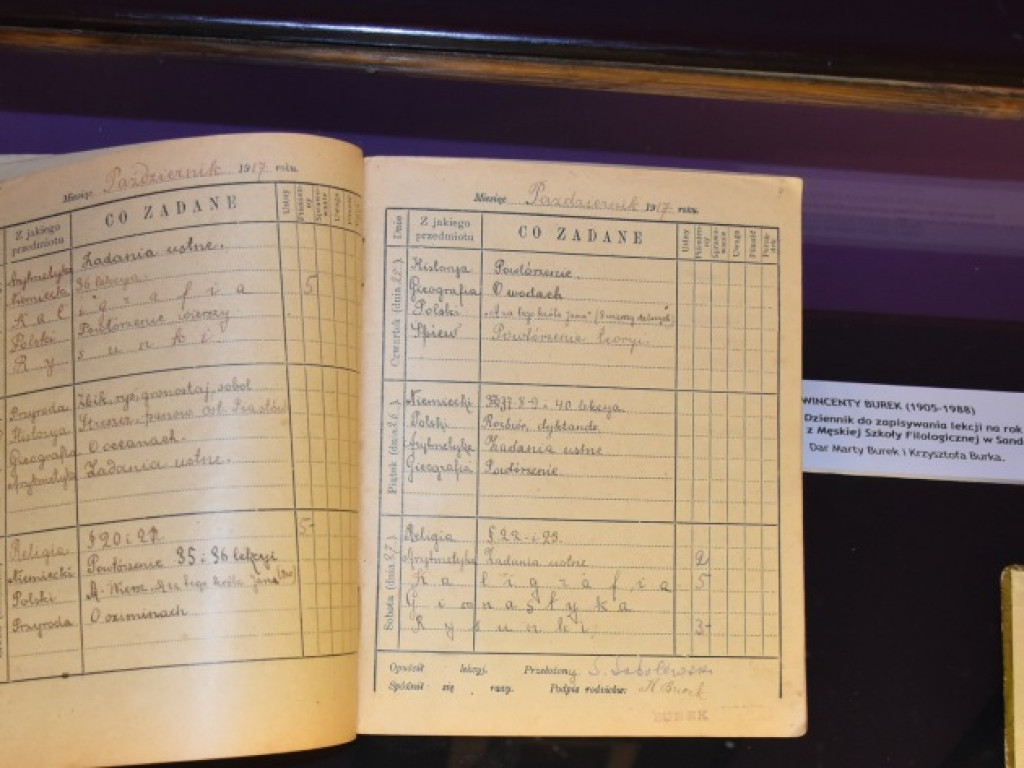 Miesiąc Październik 1917 roku.
Z jakiego przedmiotu CO ZADANE Ustny
Arytmetyka Zadania ustne.
Niemiecki 36 lekcya.
Kaligrafia 5
Polski Powtórzenie wierszy
Rysunki.
Przyroda Żbik, ryś, gronostaj, soból
Historya Ost. Piastów
Gieografia O oceanach.
Arytmetyka Zadania ustne.
Religia § 20 i 21. 5-
Niemiecki Powtórzenie 35 i 36 lekcyi
Polski A. Wiersz. A za tego króla Jana
Przyroda O oziminach
Miesiąc Październik 1917 roku.
Dnie Z jakiego przedmiotu CO ZADANE Ustny Piśmienny Sprawowanie Uwaga Pilność Porządek
Czwartek (dnia 25.)
Historya Powtórzenie.
Gieografia O wodach
Polski „A za tego króla Jana"
Śpiew Powtórzenie teoryi.
Piątek (dnia 26.)
Niemiecki 37 8-9 i 40 lekcya.
Polski Rozbiór, dyktando.
Arytmetyka Zadania ustne
Gieografia Powtórzenie
Sobota (dnia 27.)
Religia § 22 i 23.
Arytmetyka Zadania ustne 2
Kaligrafia 5
Gimnastyka
Rysunki. 3-
Opuścił lekcyj. Przełożony S. Sobolewski
Spóźnił się razy. Podpis rodziców: M Burek
BUREK
WINCENTY BUREK (1905-1988)
Dziennik do zapisywania lekcji na rok
z Męskiej Szkoły Filologicznej w Sand
Dar Marty Burek i Krzysztofa Burka.